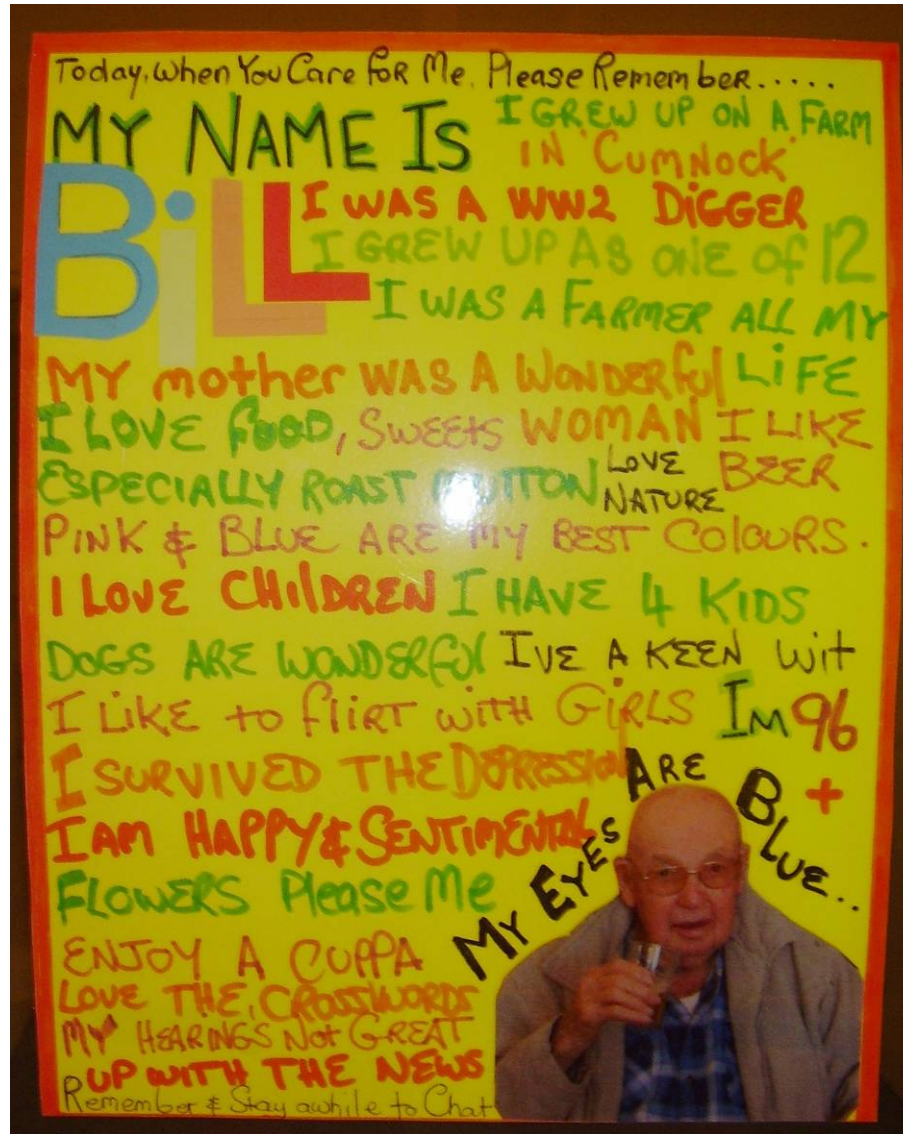 Today, When You Care For Me. Please Remember.....
MY NAME IS
BiLL
I GREW UP ON A FARM
IN 'CUMNOCK'
I WAS A WW2 DiGGER
I GREW UP AS ONE OF 12
I WAS A FARMER ALL MY
LiFE
MY mother WAS A WONDERful
WOMAN
I LOVE FOOD, SWEEtS
ESPECIALLY ROAST MUTTON
I LIKE
BEER
LOVE
NATURE
PINK & BLUE ARE MY BEST COlOURS.
I LOVE CHIlDREN
I HAVE 4 KIDS
DOGS ARE WONDERful
IVE A KEEN Wit
I LIKE to flIRT WITH GiRLS
IM 96
+
I SURVIVED THE DEPRESSION
I AM HAPPY & SENTIMENTAL
MY EYES ARE BLUE..
FLOWERS Please Me
ENJOY A CUPPA
LOVE THE CROSSWORDS
MY HEARINGS Not GREAT
UP WITH THE NEWS
Remember & Stay awhile to Chat